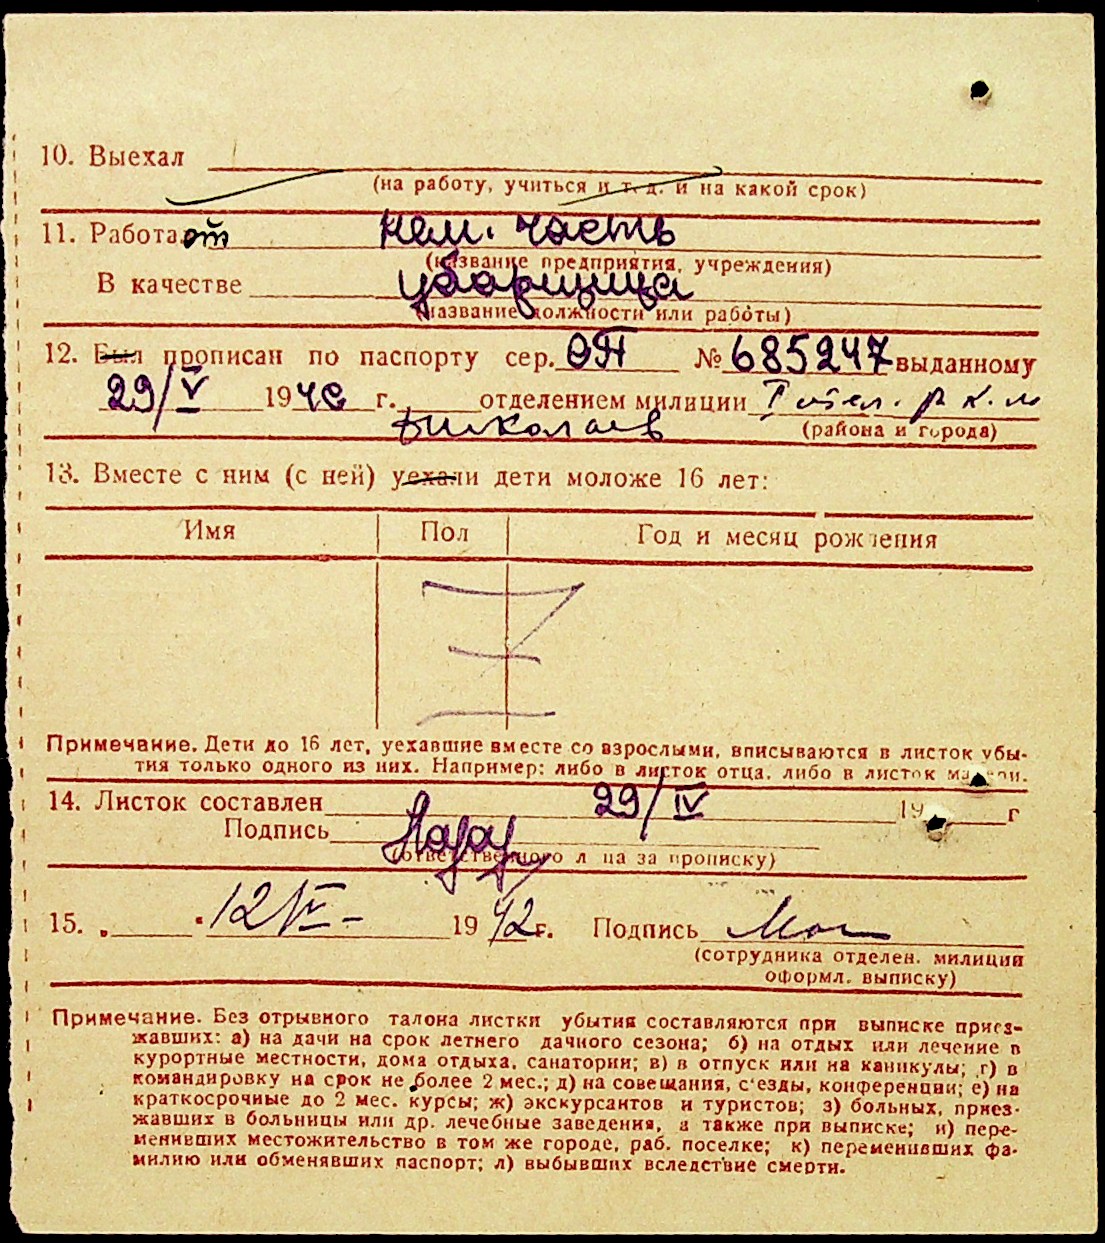 10. Выехал
(на работу, учиться и т. д. и на какой срок)
11. Работает нем. часть
(название предприятия, учреждения)
В качестве уборщица
(название должности или работы)
12. Был прописан по паспорту сер. ӨП № 685247 выданному
29/V 1940 г. отделением милиции р. к. м
Николаев (района и города)
13. Вместе с ним (с ней) уехали дети моложе 16 лет:
Имя Пол Год и месяц рождения
Z
Примечание. Дети до 16 лет, уехавшие вместе со взрослыми, вписываются в листок убы-
тия только одного из них. Например: либо в листок отца, либо в листок матери.
14. Листок составлен 29/IV 19 г
Подпись
(ответственного лица за прописку)
15. „ " 12/VI- 1942 г. Подпись
(сотрудника отделен. милиции
оформл. выписку)
Примечание. Без отрывного талона листки убытия составляются при выписке приез-
жавших: а) на дачи на срок летнего дачного сезона; б) на отдых или лечение в
курортные местности, дома отдыха, санатории; в) в отпуск или на каникулы; г) в
командировку на срок не более 2 мес.; д) на совещания, с'езды, конференции; е) на
краткосрочные до 2 мес. курсы; ж) экскурсантов и туристов; з) больных, приез-
жавших в больницы или др. лечебные заведения, а также при выписке; и) пере-
менивших местожительство в том же городе, раб. поселке; к) переменивших фа-
милию или обменявших паспорт; л) выбывших вследствие смерти.